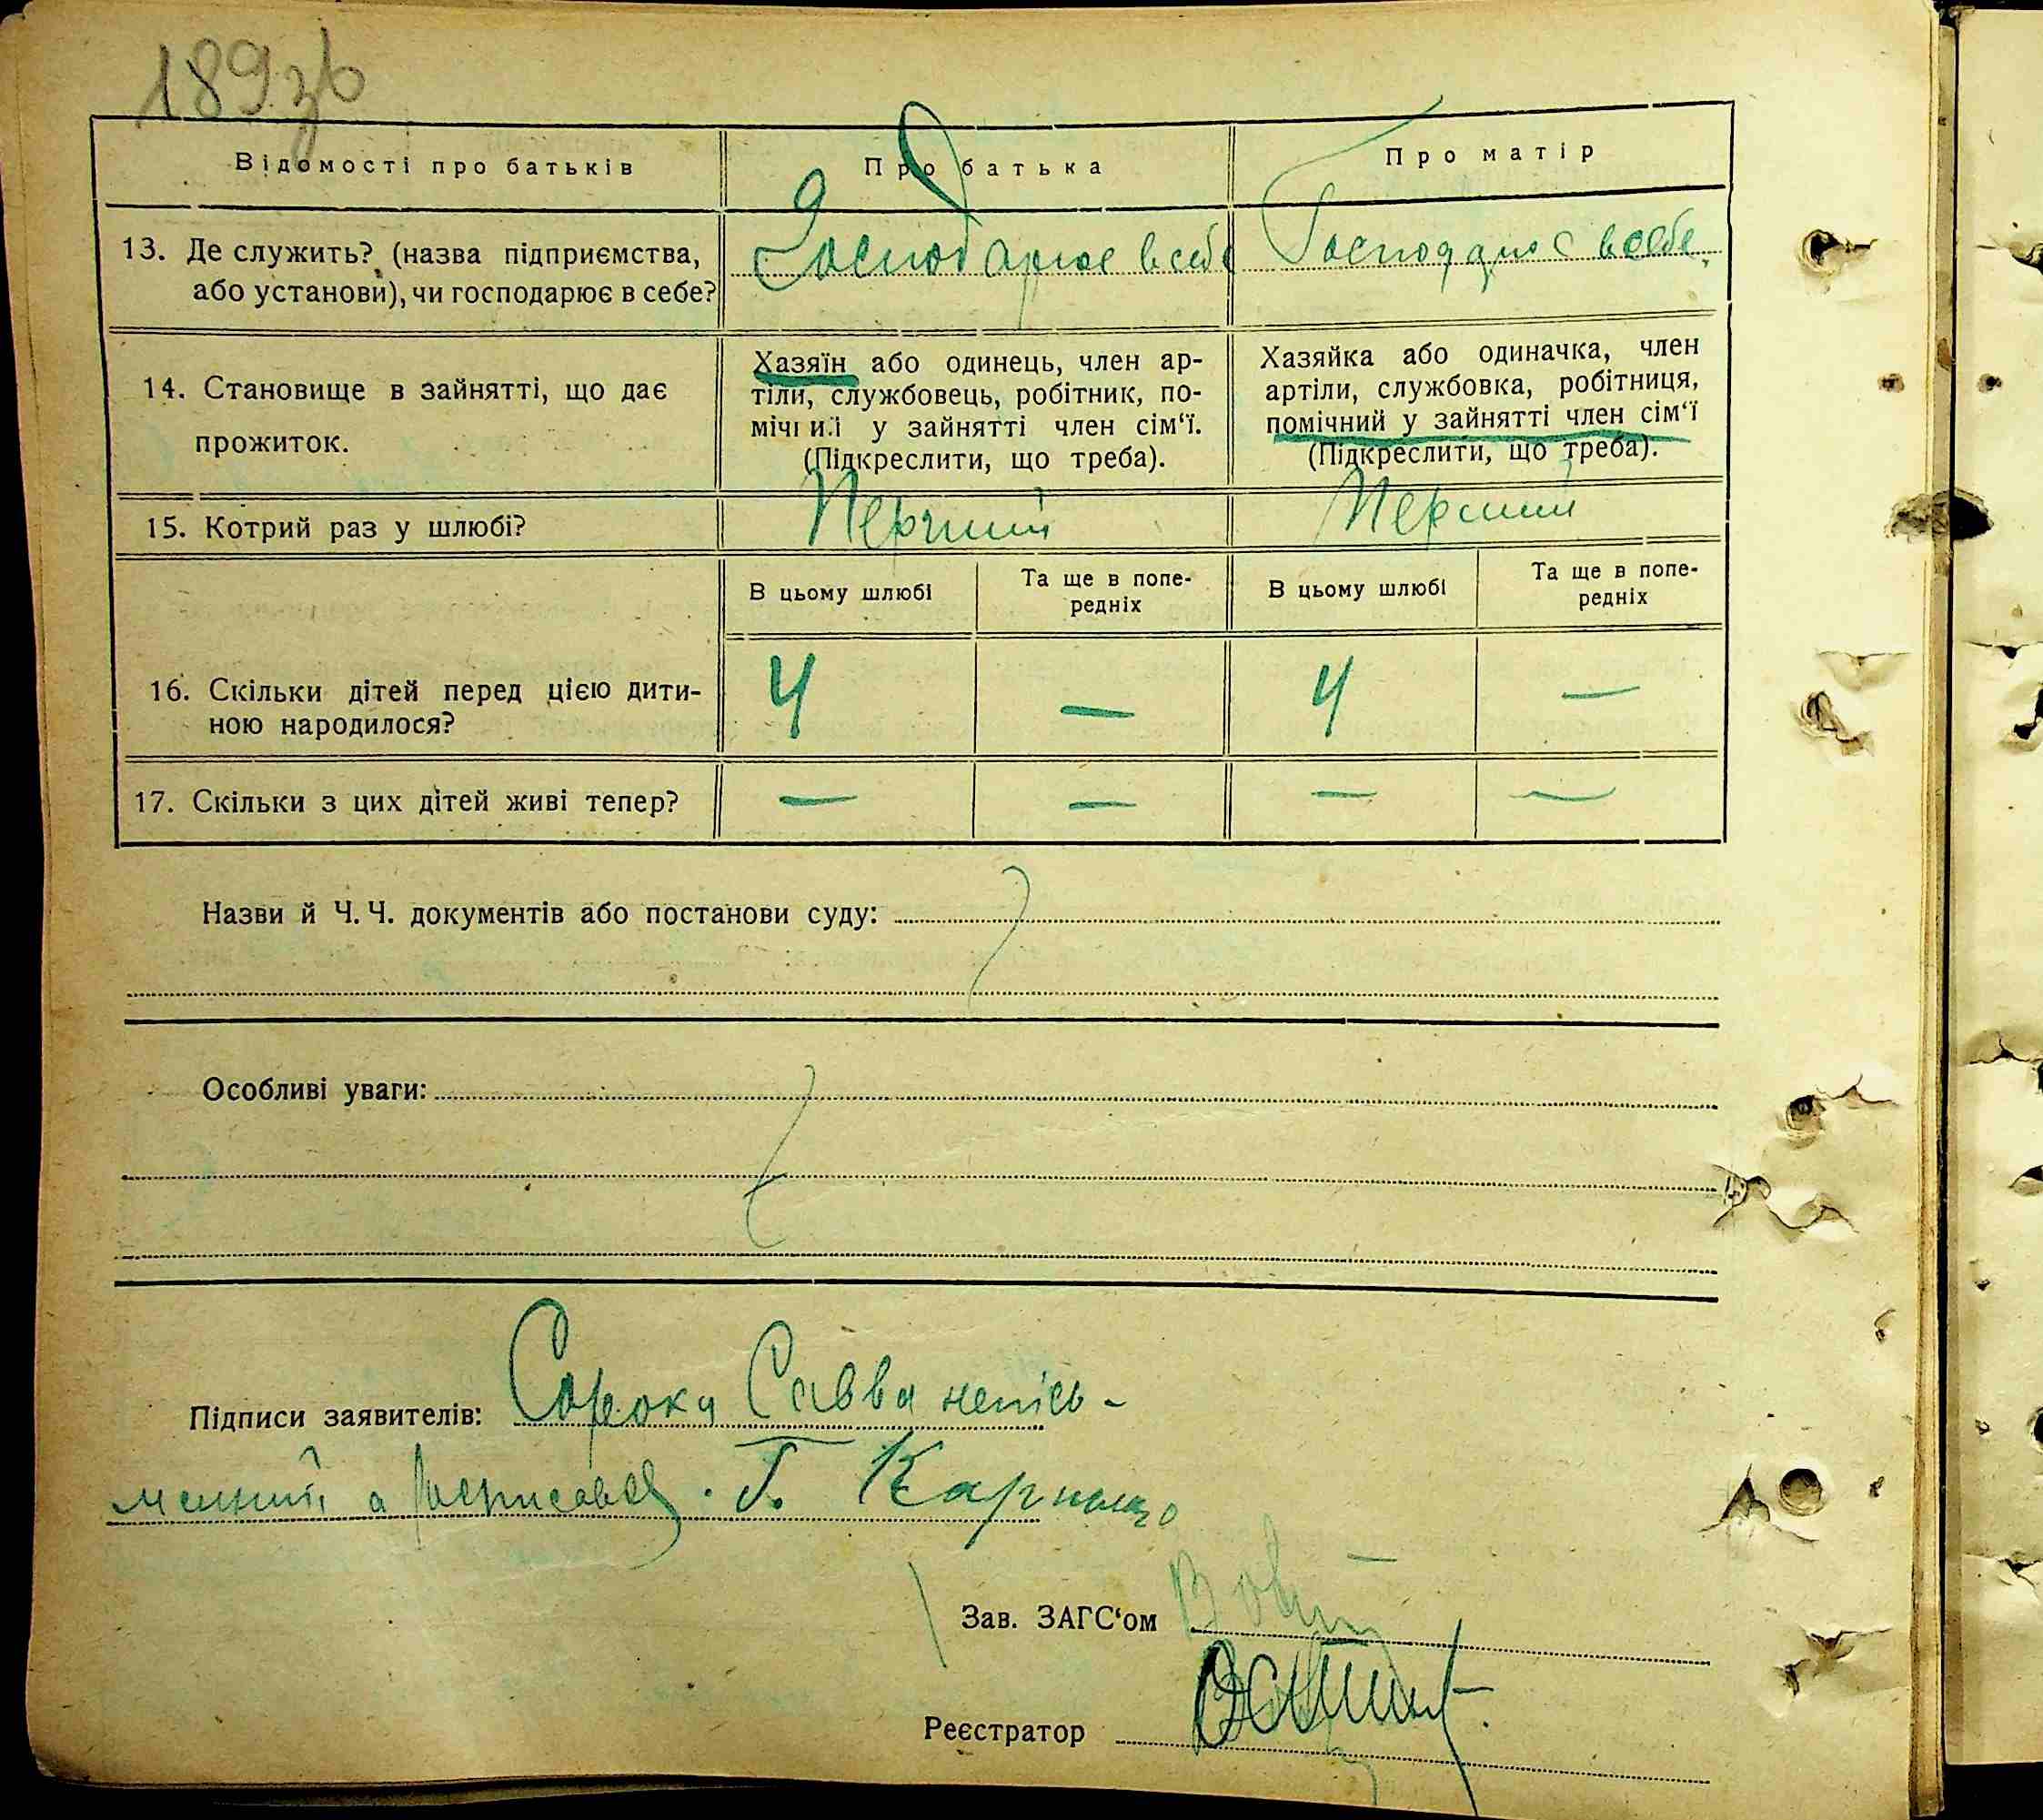 189 зв
Відомості про батьків Про батька Про матір
13. Де служить? (назва підприємства, або установи), чи господарює в себе? Господарює в себе Господарює в себе.
14. Становище в зайнятті, що дає прожиток.
Хазяїн або одинець, член ар-
тіли, службовець, робітник, по-
мічний у зайнятті член сім‘ї.
(Підкреслити, що треба).
Хазяйка або одиначка, член
артіли, службовка, робітниця,
помічний у зайнятті член сім‘ї
(Підкреслити, що треба).
15. Котрий раз у шлюбі? Перший Перший
В цьому шлюбі Та ще в попе-
редніх В цьому шлюбі Та ще в попе-
редніх
16. Скільки дітей перед цією дити-
ною народилося? 4 — 4 —
17. Скільки з цих дітей живі тепер? — — — —
Назви й Ч. Ч. документів або постанови суду:
Особливі уваги:
Підписи заявителів: Сорока Савва непісь-
менний а
Зав. ЗАГС‘ом
Реєстратор